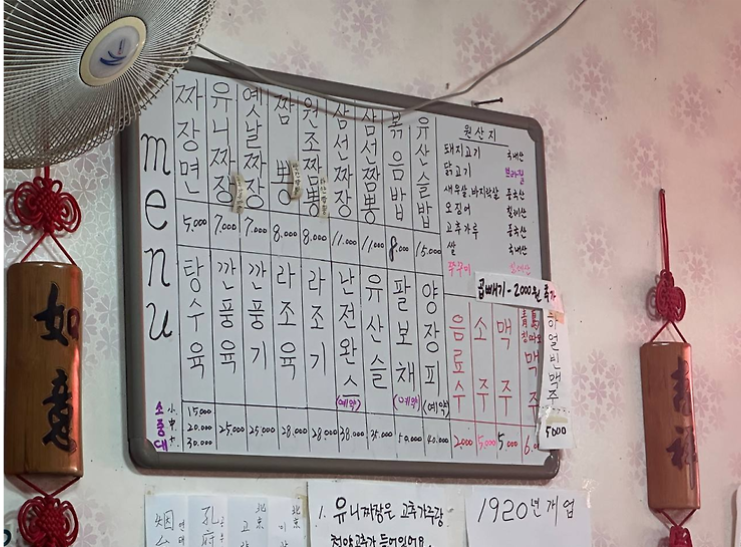 menu
짜장면 5,000
유니짜장 7,000
옛날짜장 7,000
짬뽕 8,000
원조짬뽕 8,000
삼선짜장 11,000
삼선짬뽕 11,000
볶음밥 8,000
유산슬밥 15,000
원산지
돼지고기 국내산
닭고기 브라질
새우살,바지락살 중국산
오징어
고추가루 중국산
쌀 국내산
쭈꾸미
곱빼기-2000원 추가
소 小 中 大
중
대
탕수육 15,000 20,000 30,000
깐풍육 25,000
깐풍기 25,000
라조육 28,000
라조기 28,000
난전완스 (예약) 38,000
유산슬 35,000
팔보채 (예약) 50,000
양장피 (예약) 40,000
음료수 2,000
소주 5,000
맥주 5,000
맥주 6,000
하얼빈맥주 5000
如意
1. 유니짜장은 고추가루랑
청양고추가 들어있어요.
1920년개업